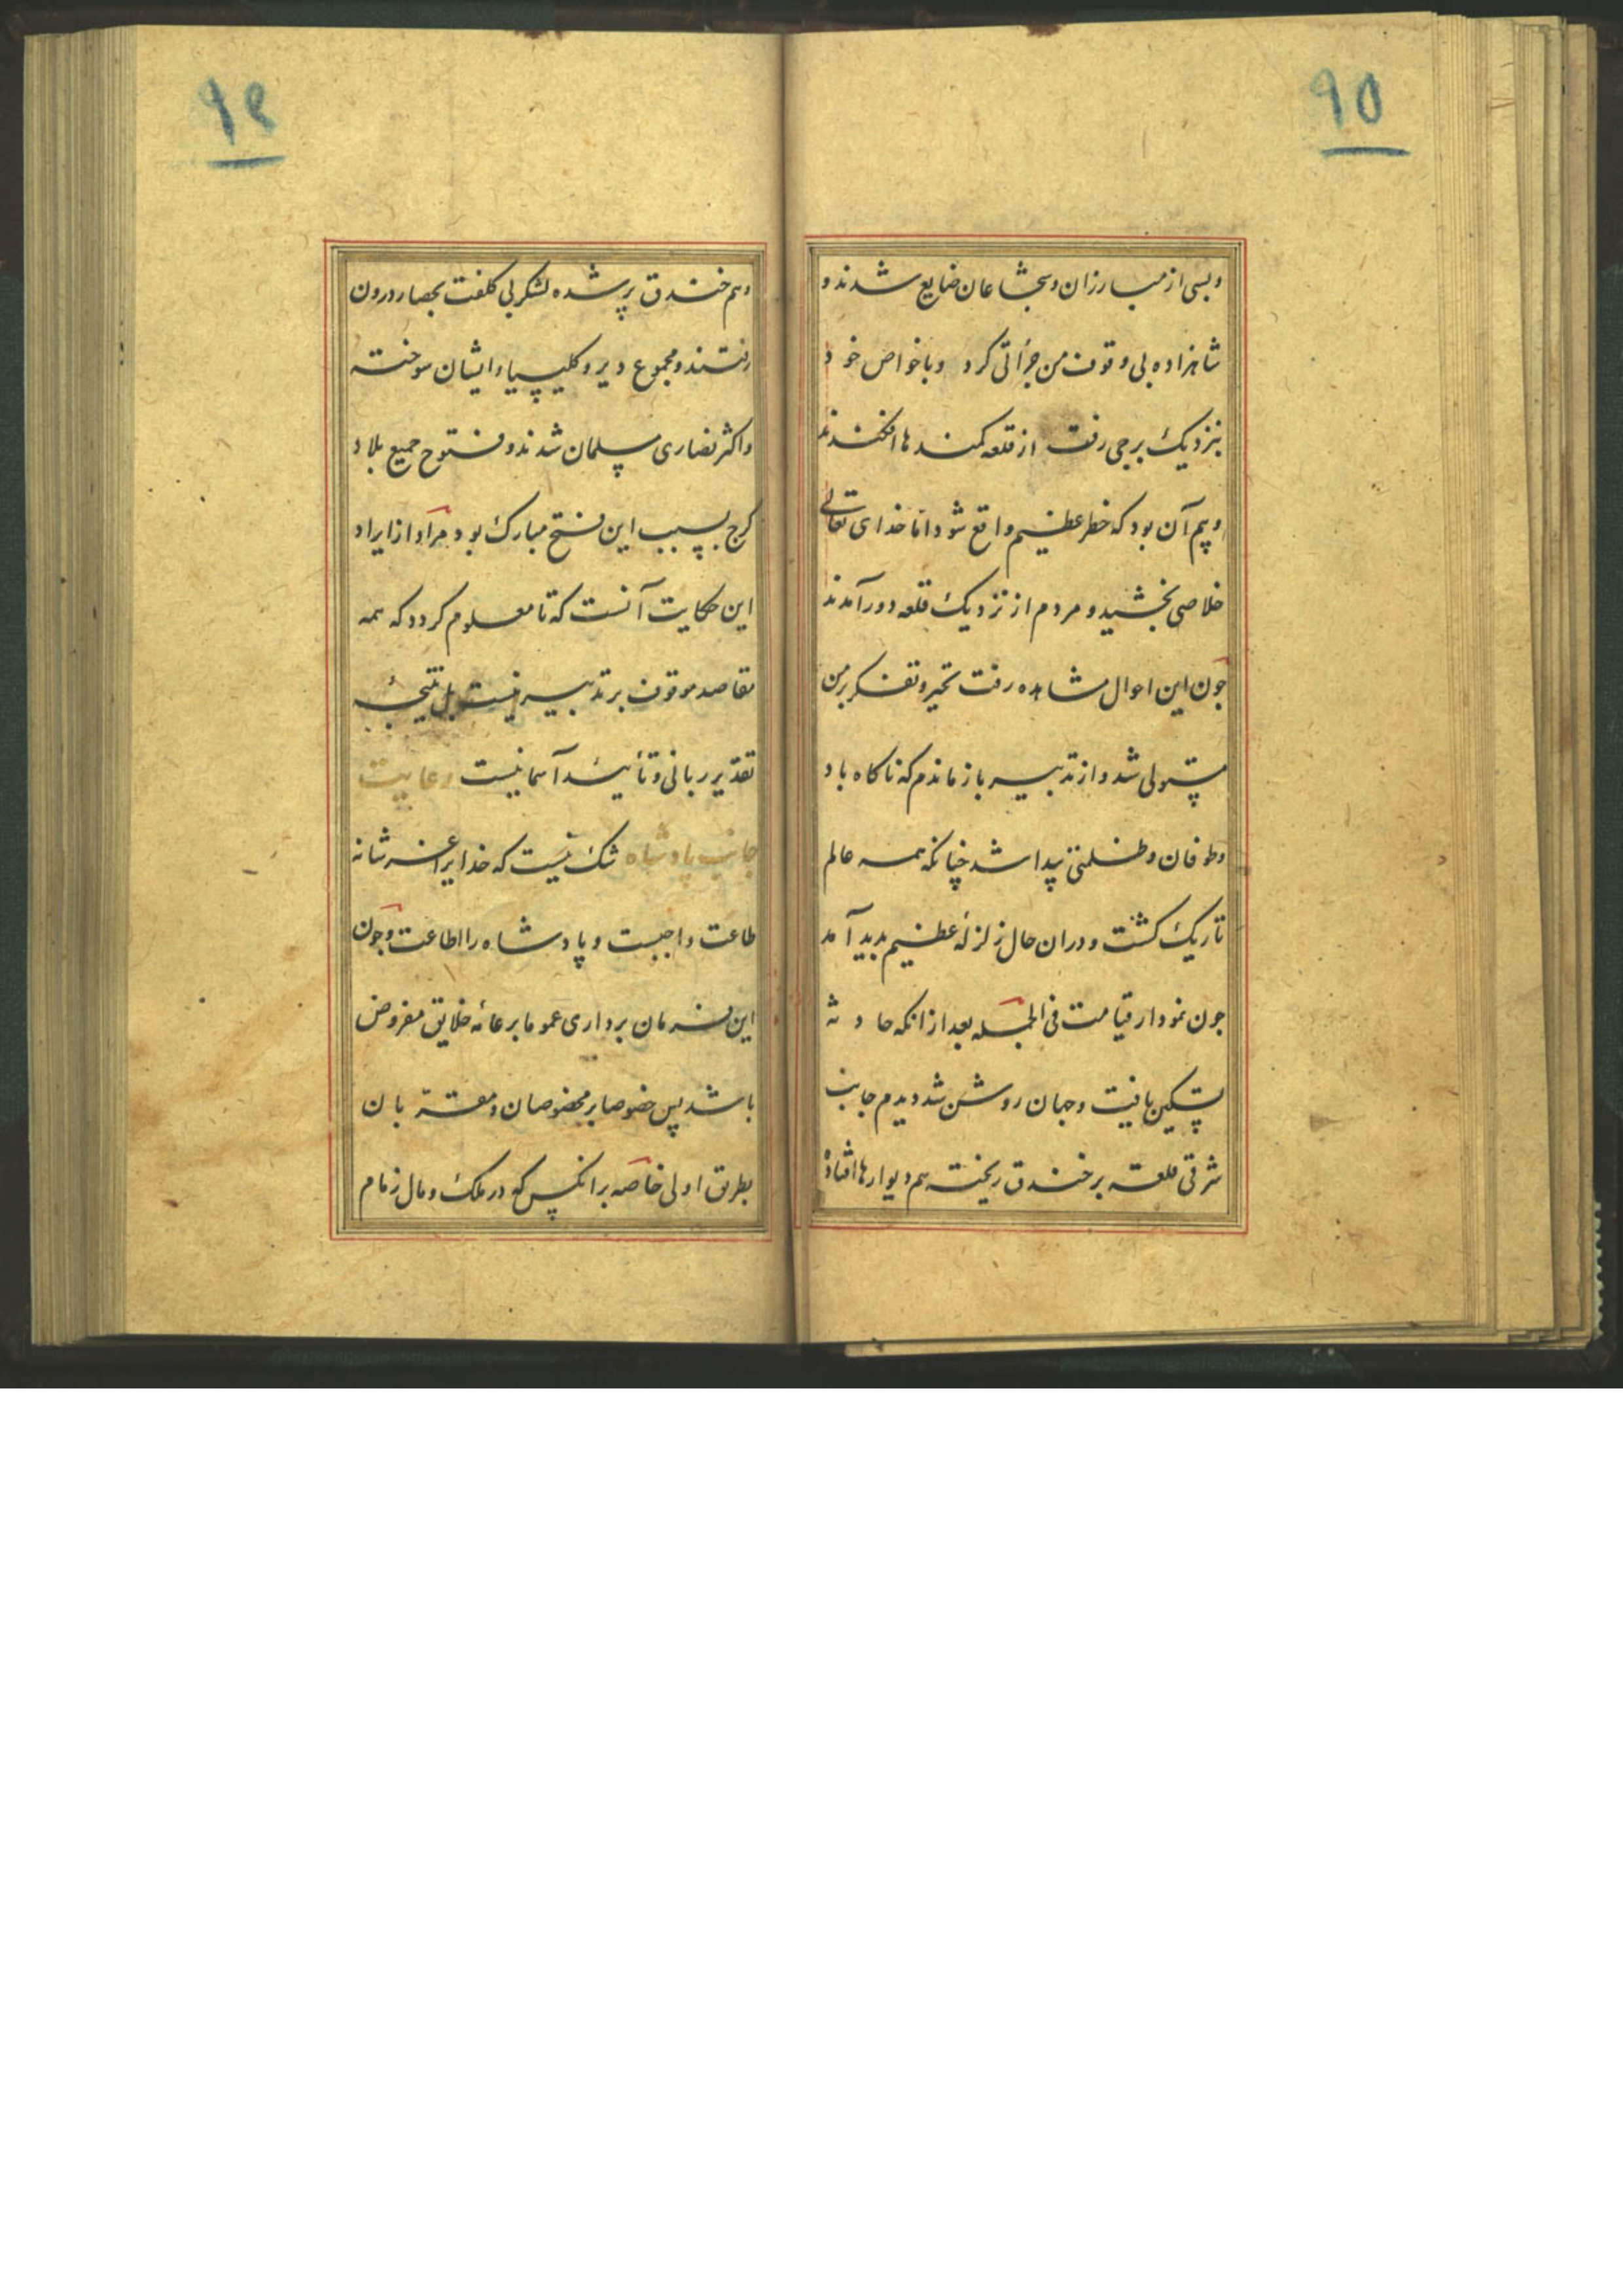 ۹۵
وبسی از مبارزان وشجاعان ضایع شدند و
شاهزاده بی وقوف من جرأتی کرد وباخواص خود
بنزدیک برجی رفت از قلعه کمندها افکندند
وبیم آن بود که خطر عظیم واقع شود اما خدای تعالی
خلاصی بخشید و مردم از نزدیک قلعه دور آمدند
جون این احوال مشاهده رفت تحیر وتفکر بر من
مستولی شد واز تدبیر باز ماندم که ناکاه باد
وطوفان وظلمتی پیدا شد چنانکه همه عالم
تاریک کشت ودران حال زلزلهٔ عظیم بدید آمد
جون نمودار قیامت فی الجمله بعد ازانکه حادثه
تسکین یافت وجهان روشن شد دیدم جانب
شرقی قلعه بر خندق ریخته هم دیوارها افتاده
۹۶
وهم خندق پر شده لشکر بی کلفت بحصار درون
رفتند ومجموع دیر وکلیسیاء ایشان سوخته
واکثر نصاری مسلمان شدند وفتوح جمیع بلاد
کرج بسبب این فتح مبارک بود ومراد از ایراد
این حکایت آنست که تا معلوم کردد که همه
مقاصد موقوف بر تدبیر نیست بل نتیجهٔ
تقدیر ربانی وتأیید آسمانیست رعایت
جانب پادشاه شک نیست که خدایرا عز شانه
طاعت واجبست و پادشاه را اطاعت وجون
این فرمان برداری عموما بر عامهٔ خلایق مفروض
باشد پس خصوصا بر مخصوصان ومقربان
بطریق اولی خاصه برانکس که در ملک ومال زمام